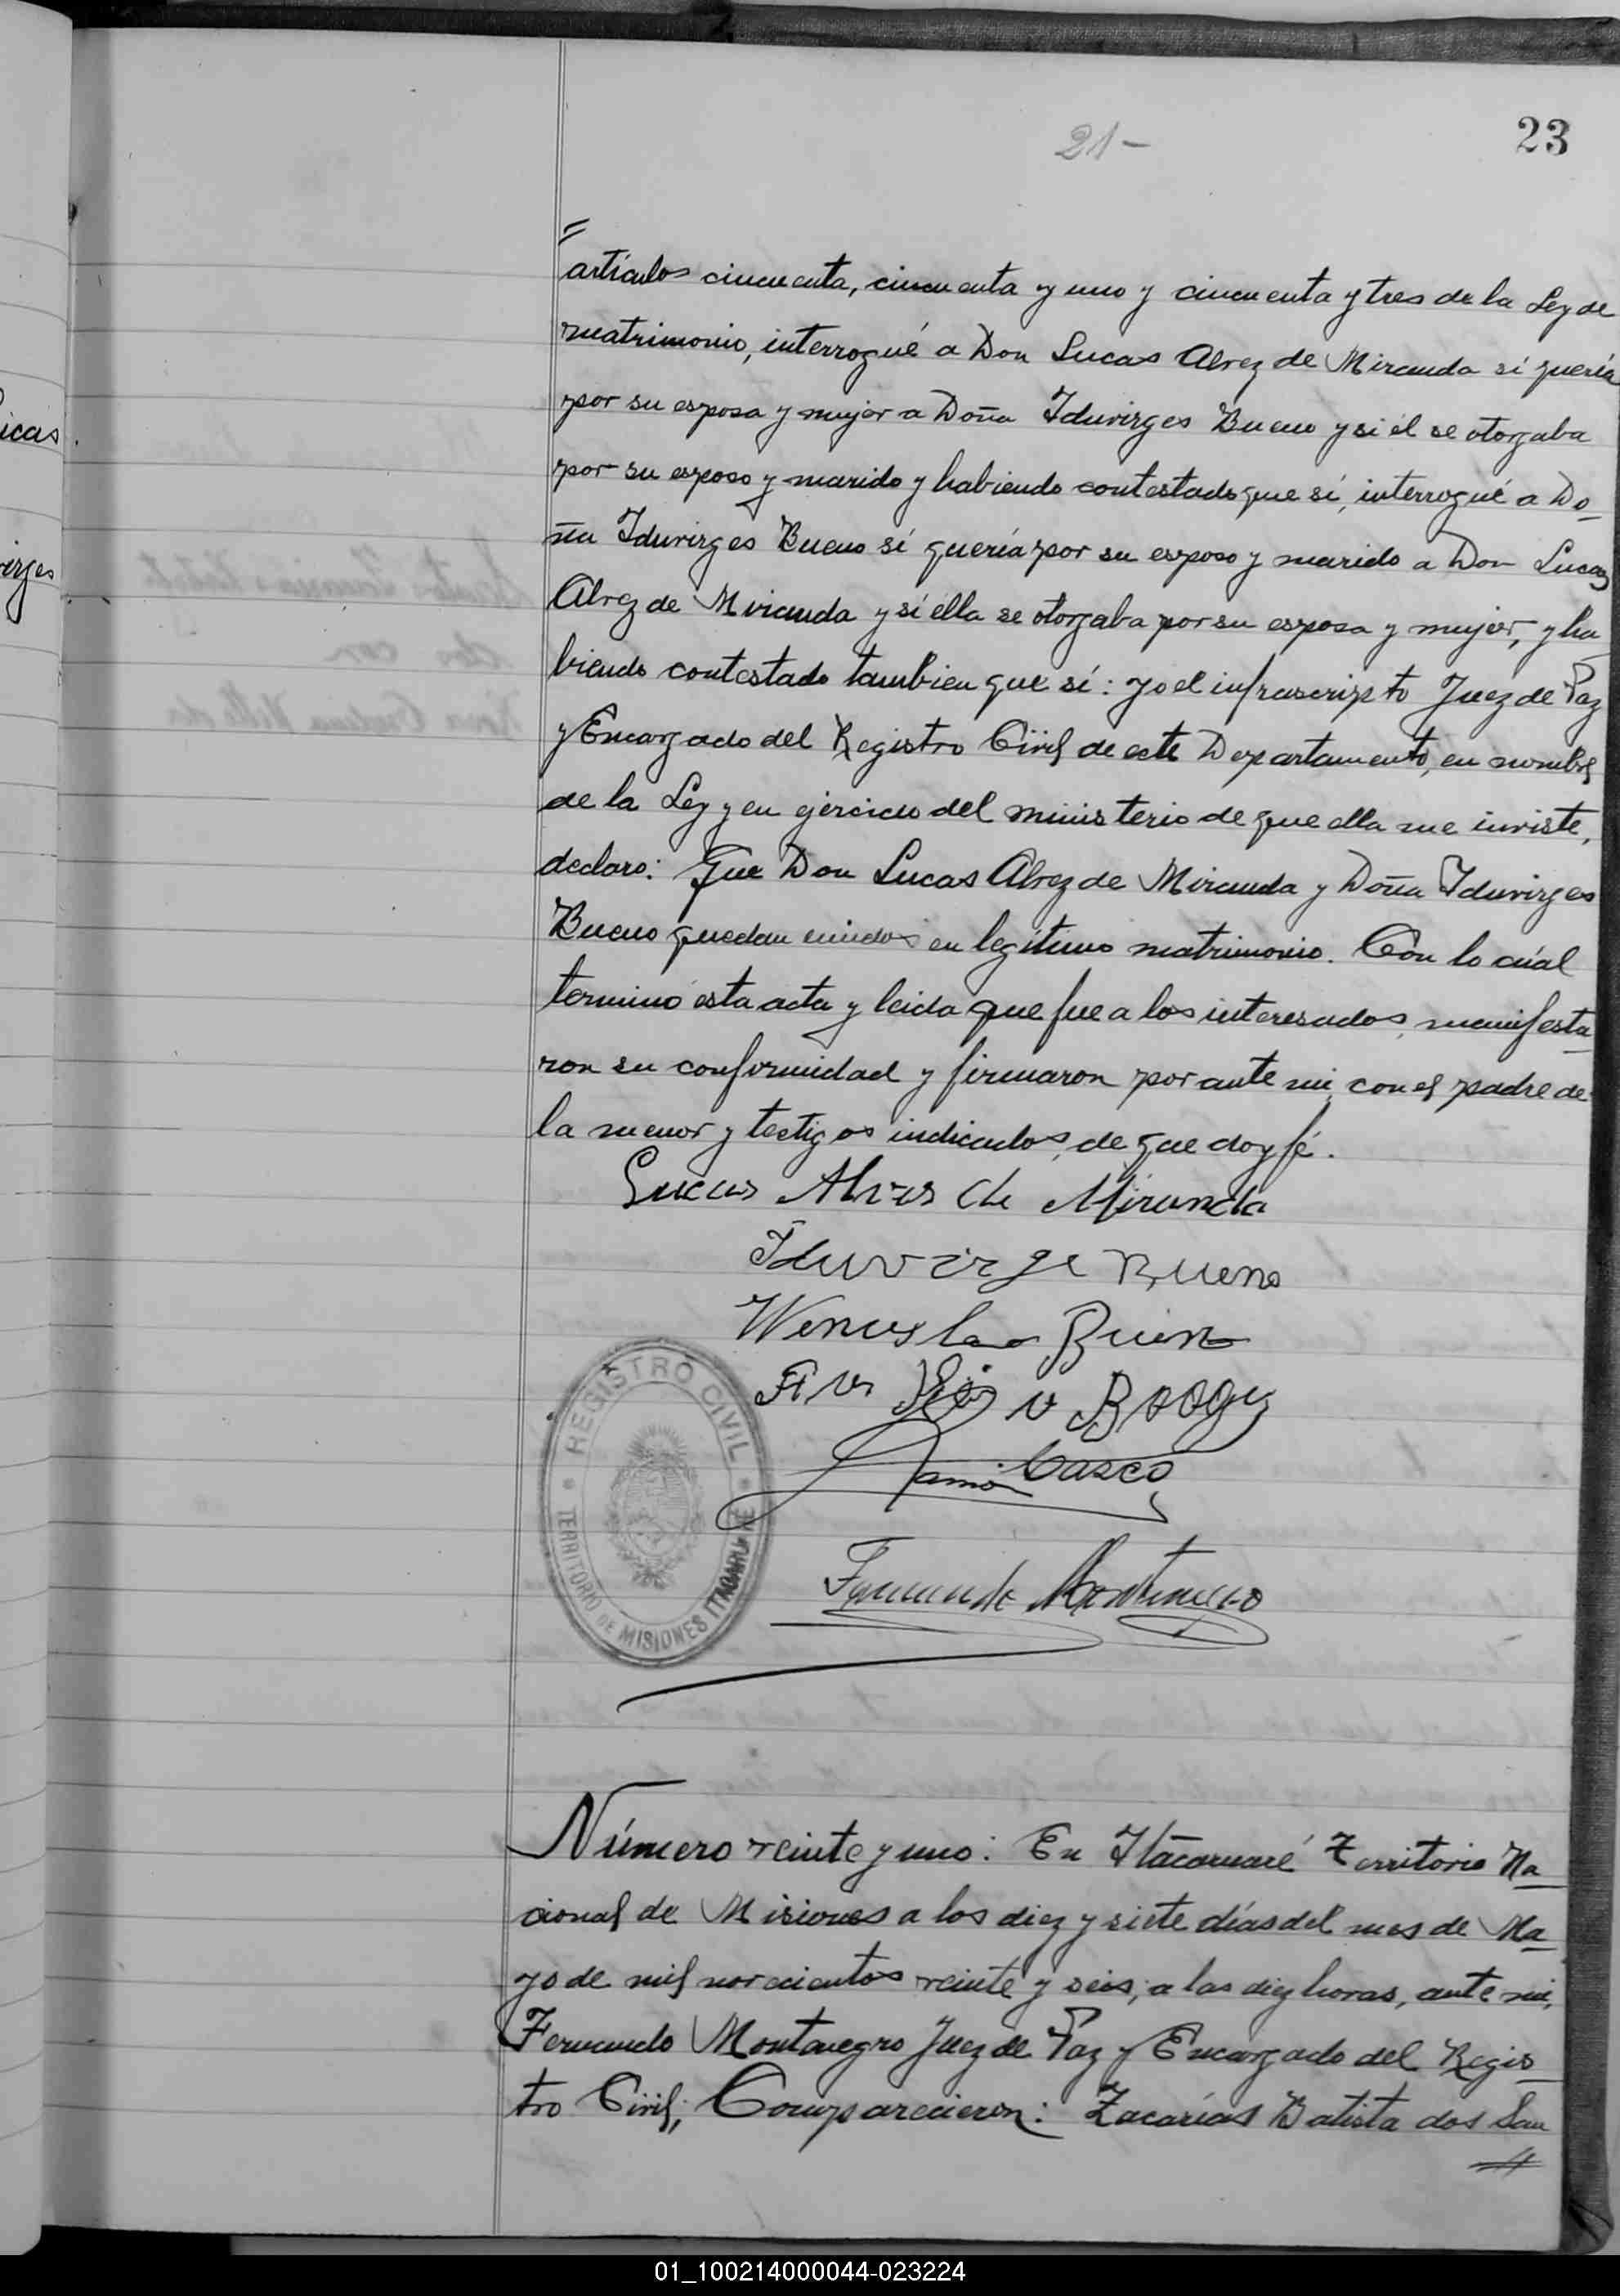 icas.
virges
21-
23
artículos cincuenta, cincuenta y uno y cincuenta y tres de la Ley de
matrimonio, interrogué a Don Lucas Alvez de Miranda sí quería
por su esposa y mujer a Doña Iduvirges Bueno y si él se otorgaba
por su esposo y marido y habiendo contestado que sí, interrogué a Do-
ña Iduvirges Bueno sí quería por su esposo y marido a Don Lucas
Alvez de Miranda y sí ella se otorgaba por su esposa y mujer, y ha
biendo contestado tambien que sí: yo el infrascripto Juez de Paz
y Encargado del Registro Civil de este Departamento, en nombre
de la Ley y en ejercicio del ministerio de que ella me inviste,
declaro: Que Don Lucas Alvez de Miranda y Doña Iduvirges
Bueno quedan unidos en legítimo matrimonio. Con lo cúal
terminó esta acta y leida que fue a los interesados, manifesta-
ron su conformidad y firmaron por ante mi, con el padre de
la menor y testigos indicados, de que doy fé.
Lucas Alves de Miranda
Iduvirge Bueno
Wenceslao Bueno
Ramón Casco
Fernando Montenegro
REGISTRO CIVIL
TERRITORIO DE MISIONES ITACARUARE
Número veinte y uno: En Itacaruaré Territorio Na-
cional de Misiones a los diez y siete días del mes de Ma-
yo de mil novecientos veinte y seis, a las diez horas, ante mi,
Fernando Montenegro Juez de Paz y Encargado del Regis-
tro Civil; Comparecieron: Zacarías Batista dos San
01_100214000044-023224